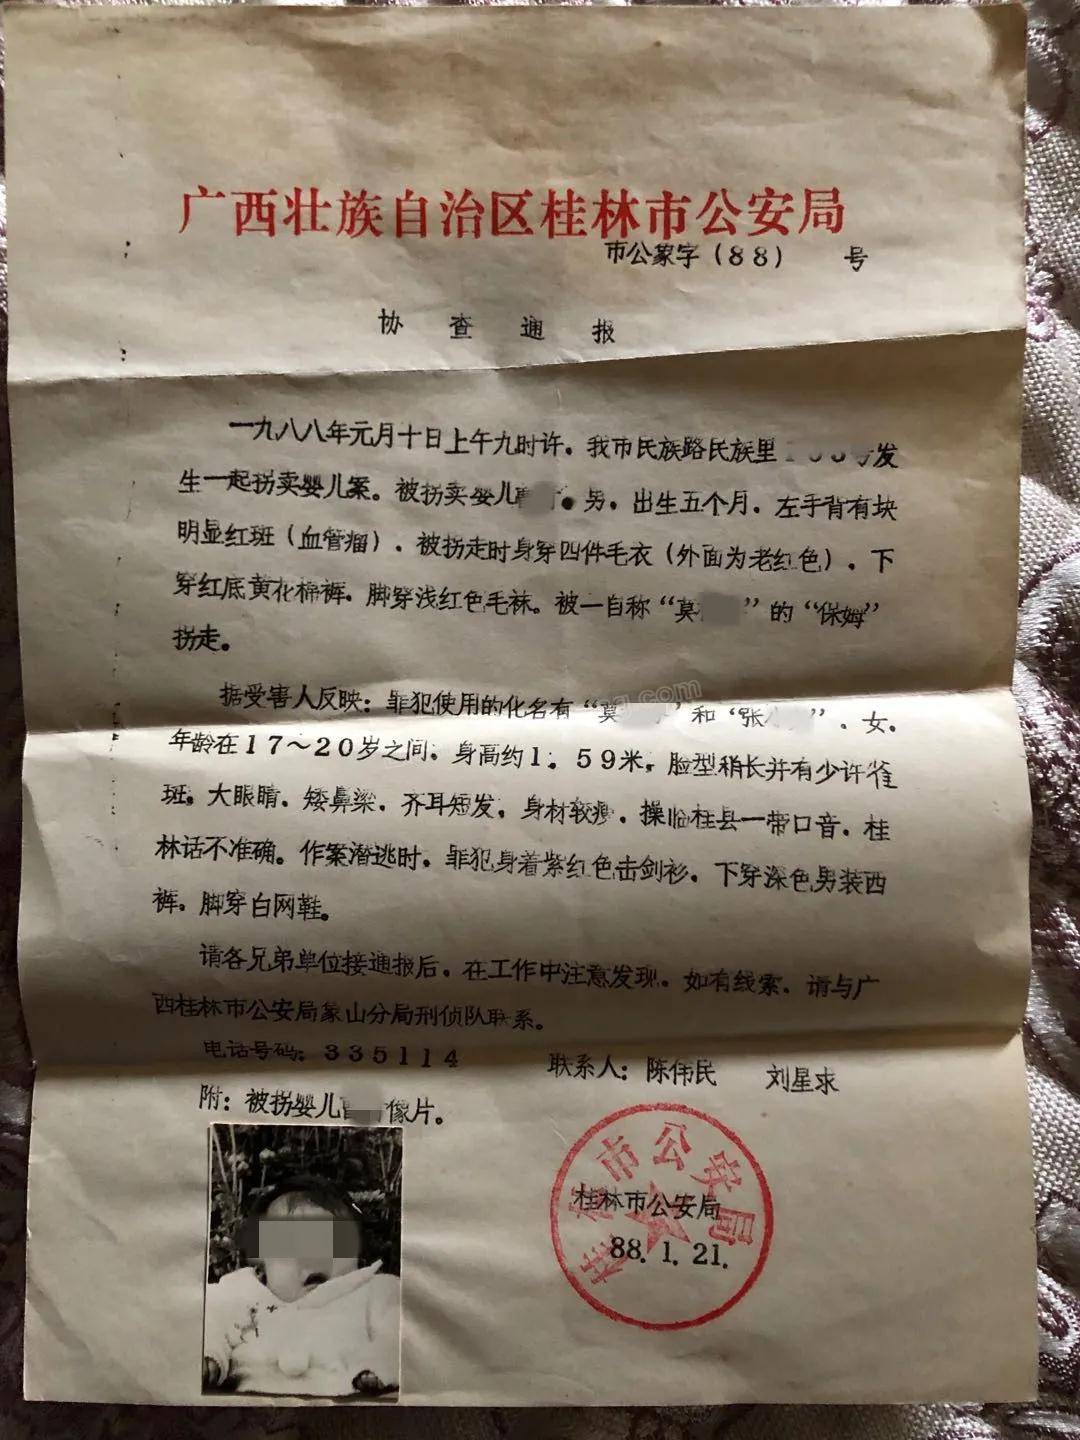 广西壮族自治区桂林市公安局
市公象字（88） 号
协查通报
一九八八年元月十日上午九时许，我市民族路民族里号发
生一起拐卖婴儿案。被拐卖婴儿，男，出生五个月，左手背有块
明显红斑（血管瘤），被拐走时身穿四件毛衣（外面为老红色），下
穿红底黄花棉裤，脚穿浅红色毛袜。被一自称“莫”的“保姆”
拐走。
据受害人反映：罪犯使用的化名有“莫”和“张”，女，
年龄在17～20岁之间，身高约1．59米，脸型稍长并有少许雀
斑，大眼睛，矮鼻梁，齐耳短发，身材较瘦，操临桂县一带口音，桂
林话不准确。作案潜逃时，罪犯身着紫红色击剑衫，下穿深色男装西
裤，脚穿白网鞋。
请各兄弟单位接通报后，在工作中注意发现，如有线索，请与广
西桂林市公安局象山分局刑侦队联系。
电话号码：335114 联系人：陈伟民 刘星求
附：被拐婴儿像片。
桂林市公安局
桂林市公安局
88.1.21.